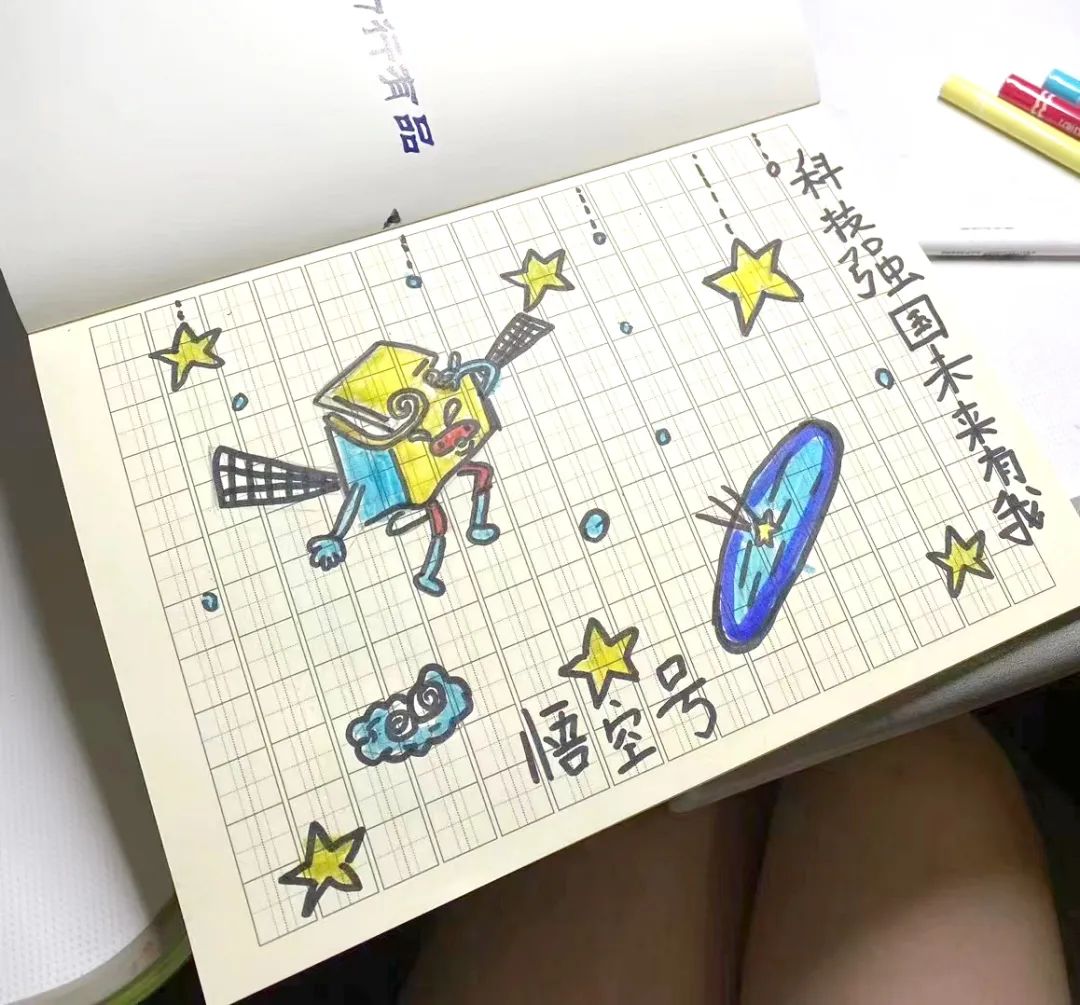 行有品
科技强国未来有我
悟空号